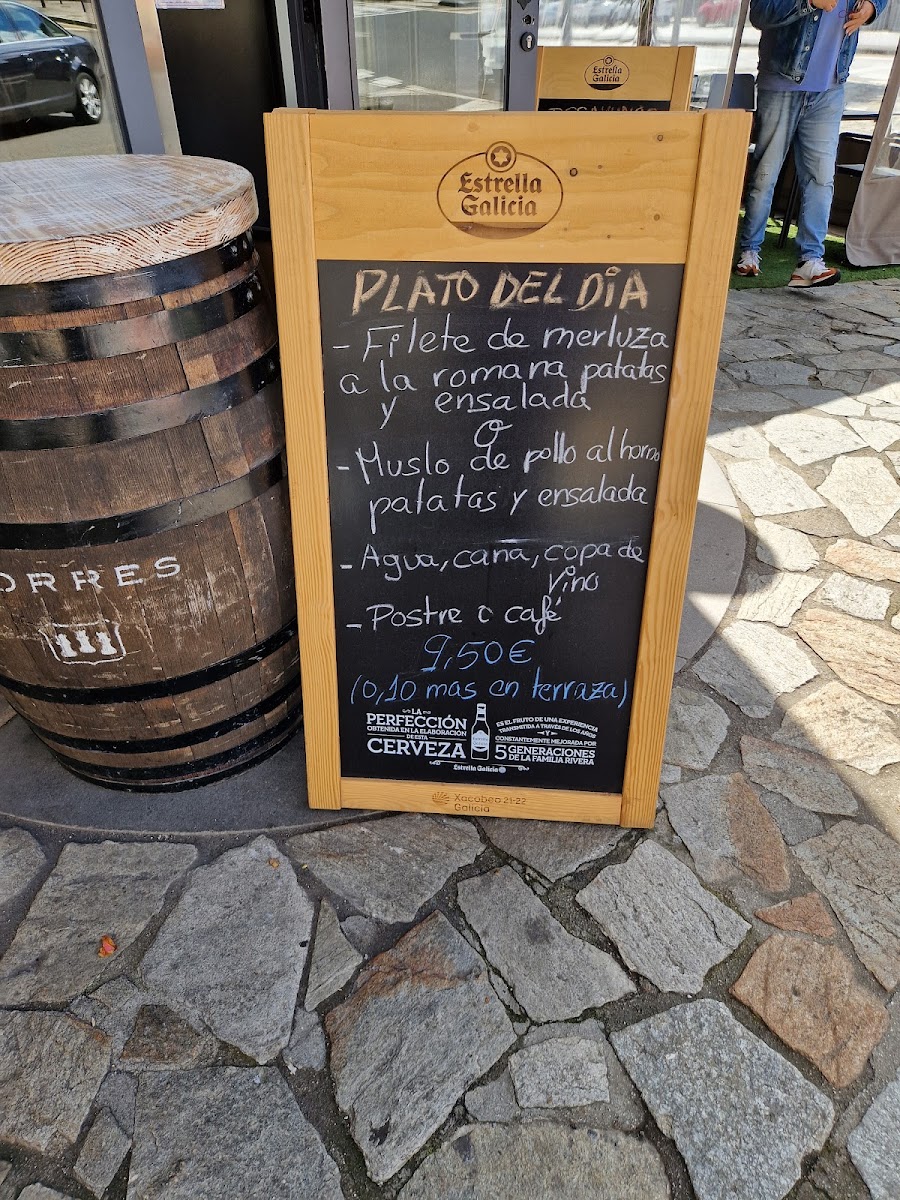 Estrella
Galicia
Estrella
Galicia
PLATO DEL DÍA
- Filete de merluza
a la romana patatas
y ensalada
O
- Muslo de pollo al horno
patatas y ensalada
- Agua, cana, copa de
vino
- Postre o café
9,50€
(0,10 mas en terraza)
LA
PERFECCIÓN
OBTENIDA EN LA ELABORACIÓN
DE ESTA
CERVEZA
ES EL FRUTO DE UNA EXPERIENCIA
TRANSMITIDA A TRAVÉS DE LOS AÑOS
Y
CONSTANTEMENTE MEJORADA POR
5 GENERACIONES
DE LA FAMILIA RIVERA
Estrella Galicia
Xacobeo 21·22
Galicia
ORRES